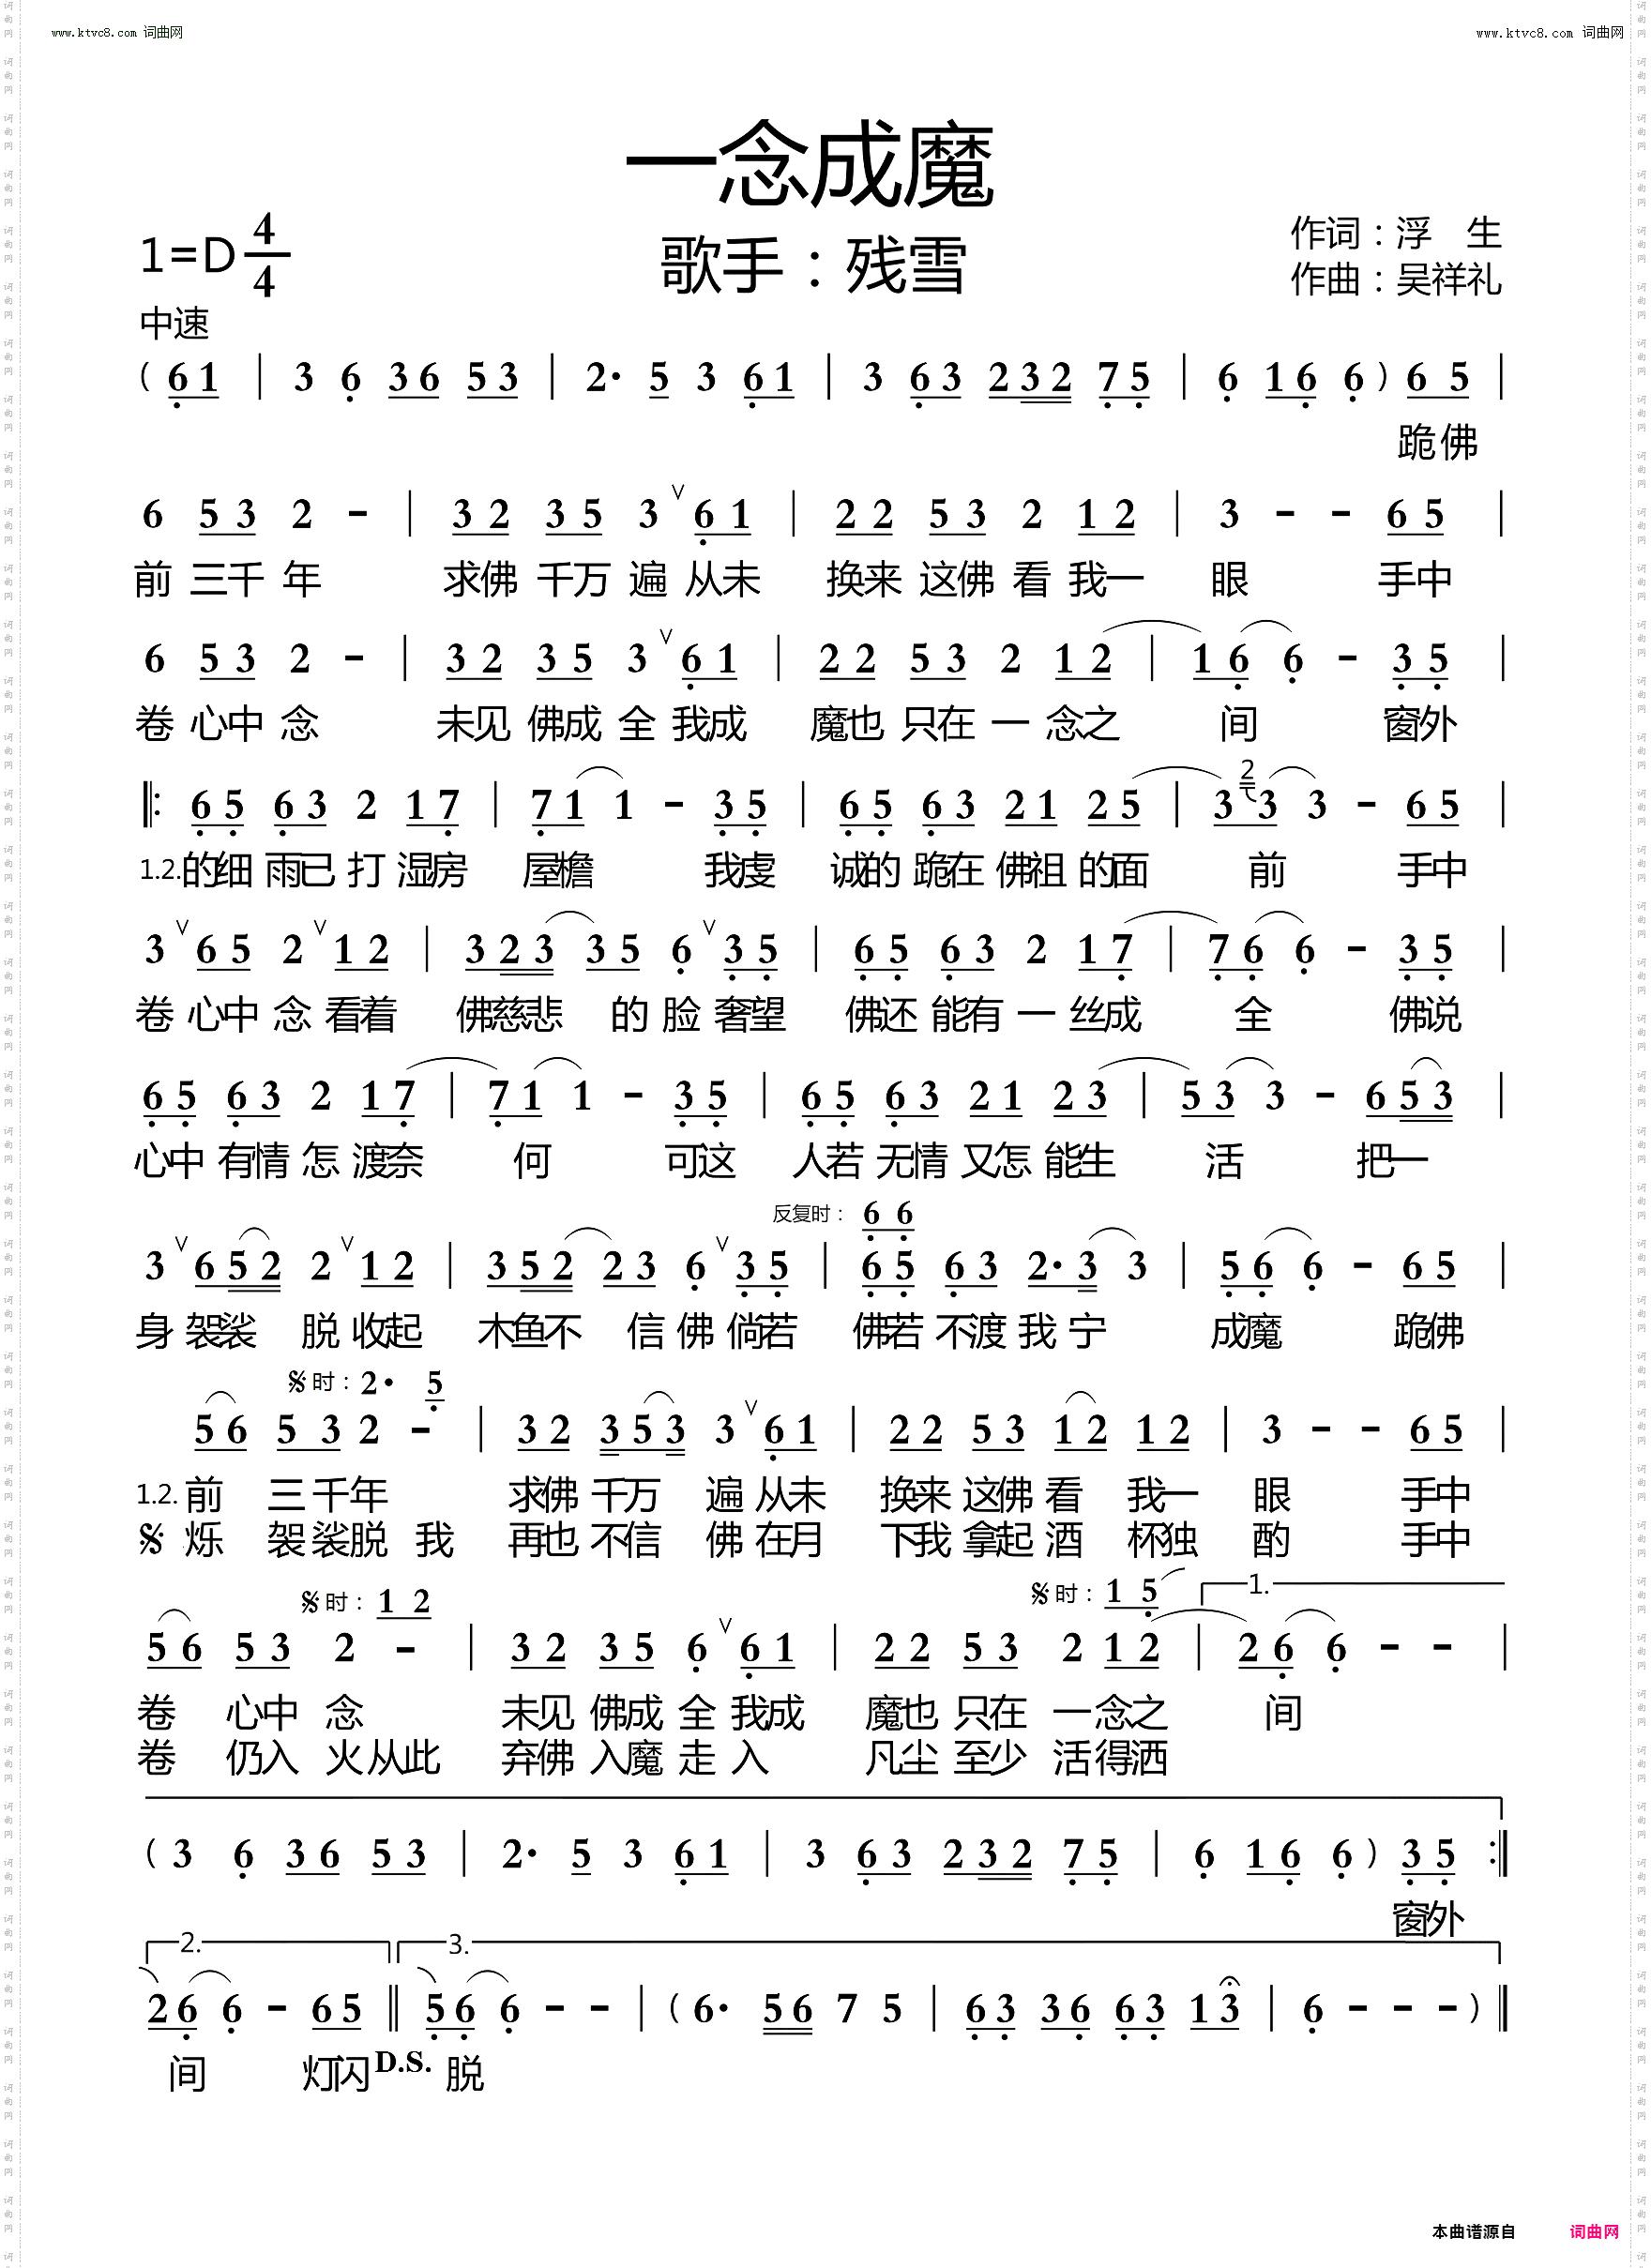 www.ktvc8.com 词曲网
www.ktvc8.com 词曲网
一念成魔
1=D 4/4
歌手：残雪
作词：浮 生
作曲：吴祥礼
中速
( 6 1 | 3 6 3 6 5 3 | 2· 5 3 6 1 | 3 6 3 2 3 2 7 5 | 6 1 6 6 ) 6 5 |
跪佛
6 5 3 2 - | 3 2 3 5 3 ∨ 6 1 | 2 2 5 3 2 1 2 | 3 - - 6 5 |
前 三千 年 求佛 千万 遍 从未 换来 这佛 看 我一 眼 手中
6 5 3 2 - | 3 2 3 5 3 ∨ 6 1 | 2 2 5 3 2 1 2 | 1 6 6 - 3 5 |
卷 心中 念 未见 佛成 全 我成 魔也 只在 一 念之 间 窗外
2
‖: 6 5 6 3 2 1 7 | 7 1 1 - 3 5 | 6 5 6 3 2 1 2 5 | 3 3 3 - 6 5 |
1.2.的细 雨已 打 湿房 屋檐 我虔 诚的 跪在 佛祖 的面 前 手中
3 ∨ 6 5 2 ∨ 1 2 | 3 2 3 3 5 6 ∨ 3 5 | 6 5 6 3 2 1 7 | 7 6 6 - 3 5 |
卷 心中 念 看着 佛慈悲 的 脸 奢望 佛还 能有 一 丝成 全 佛说
6 5 6 3 2 1 7 | 7 1 1 - 3 5 | 6 5 6 3 2 1 2 3 | 5 3 3 - 6 5 3 |
心中 有情 怎 渡奈 何 可这 人若 无情 又怎 能生 活 把一
反复时： 6 6
3 ∨ 6 5 2 2 ∨ 1 2 | 3 5 2 2 3 6 ∨ 3 5 | 6 5 6 3 2· 3 3 | 5 6 6 - 6 5 |
身 袈裟 脱 收起 木鱼不 信 佛 倘若 佛若 不渡 我 宁 成魔 跪佛
𝄋 时：2· 5
5 6 5 3 2 - | 3 2 3 5 3 3 ∨ 6 1 | 2 2 5 3 1 2 1 2 | 3 - - 6 5 |
1.2. 前 三 千年 求佛 千万 遍 从未 换来 这佛 看 我一 眼 手中
𝄋 烁 袈 裟脱 我 再也 不信 佛 在月 下我 拿起 酒 杯独 酌 手中
𝄋 时：1 2
𝄋 时：1 5 1.
5 6 5 3 2 - | 3 2 3 5 6 ∨ 6 1 | 2 2 5 3 2 1 2 | 2 6 6 - - |
卷 心中 念 未见 佛成 全 我成 魔也 只在 一念之 间
卷 仍入 火从此 弃佛 入魔 走 入 凡尘 至少 活得洒
( 3 6 3 6 5 3 | 2· 5 3 6 1 | 3 6 3 2 3 2 7 5 | 6 1 6 6 ) 3 5 :‖
窗外
2. 3.
2 6 6 - 6 5 ‖ 5 6 6 - - | ( 6· 5 6 7 5 | 6 3 3 6 6 3 1 3 | 6 - - - ) ‖
间 灯闪 D.S. 脱
本曲谱源自 词曲网